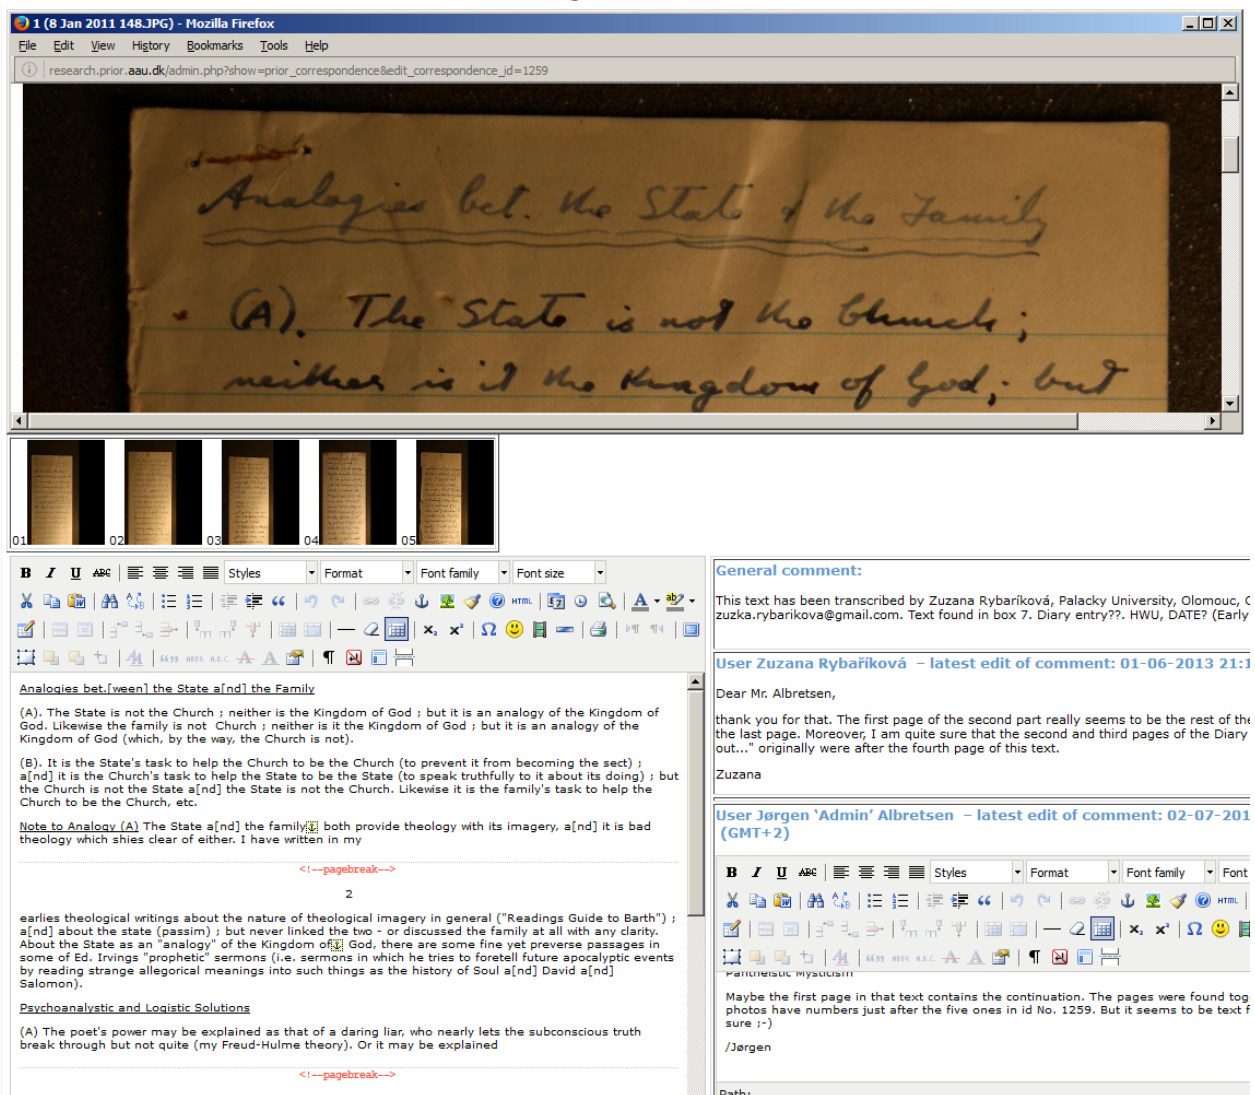 1 (8 Jan 2011 148.JPG) - Mozilla Firefox
File Edit View History Bookmarks Tools Help
research.prior.aau.dk/admin.php?show=prior_correspondence&edit_correspondence_id=1259
Analogies bet. the State & the Family
(A). The State is not the Church;
neither is it the Kingdom of God; but
01 02 03 04 05
B I U ABC Styles Format Font family Font size
HTML
ABBR A.B.C.
Analogies bet.[ween] the State a[nd] the Family
(A). The State is not the Church ; neither is the Kingdom of God ; but it is an analogy of the Kingdom of
God. Likewise the family is not Church ; neither is it the Kingdom of God ; but it is an analogy of the
Kingdom of God (which, by the way, the Church is not).
(B). It is the State's task to help the Church to be the Church (to prevent it from becoming the sect) ;
a[nd] it is the Church's task to help the State to be the State (to speak truthfully to it about its doing) ; but
the Church is not the State a[nd] the State is not the Church. Likewise it is the family's task to help the
Church to be the Church, etc.
Note to Analogy (A) The State a[nd] the family both provide theology with its imagery, a[nd] it is bad
theology which shies clear of either. I have written in my
<!--pagebreak-->
2
earlies theological writings about the nature of theological imagery in general ("Readings Guide to Barth") ;
a[nd] about the state (passim) ; but never linked the two - or discussed the family at all with any clarity.
About the State as an "analogy" of the Kingdom of God, there are some fine yet preverse passages in
some of Ed. Irvings "prophetic" sermons (i.e. sermons in which he tries to foretell future apocalyptic events
by reading strange allegorical meanings into such things as the history of Soul a[nd] David a[nd]
Salomon).
Psychoanalystic and Logistic Solutions
(A) The poet's power may be explained as that of a daring liar, who nearly lets the subconscious truth
break through but not quite (my Freud-Hulme theory). Or it may be explained
<!--pagebreak-->
General comment:
This text has been transcribed by Zuzana Rybaríková, Palacky University, Olomouc, C
zuzka.rybarikova@gmail.com. Text found in box 7. Diary entry??. HWU, DATE? (Early
User Zuzana Rybaříková – latest edit of comment: 01-06-2013 21:1
Dear Mr. Albretsen,
thank you for that. The first page of the second part really seems to be the rest of the
the last page. Moreover, I am quite sure that the second and third pages of the Diary
out..." originally were after the fourth page of this text.
Zuzana
User Jørgen ‘Admin’ Albretsen – latest edit of comment: 02-07-201
(GMT+2)
B I U ABC Styles Format Font family Font
HTML
ABBR A.B.C.
Pantheistic Mysticism
Maybe the first page in that text contains the continuation. The pages were found tog
photos have numbers just after the five ones in id No. 1259. But it seems to be text f
sure ;-)
/Jørgen
Path: